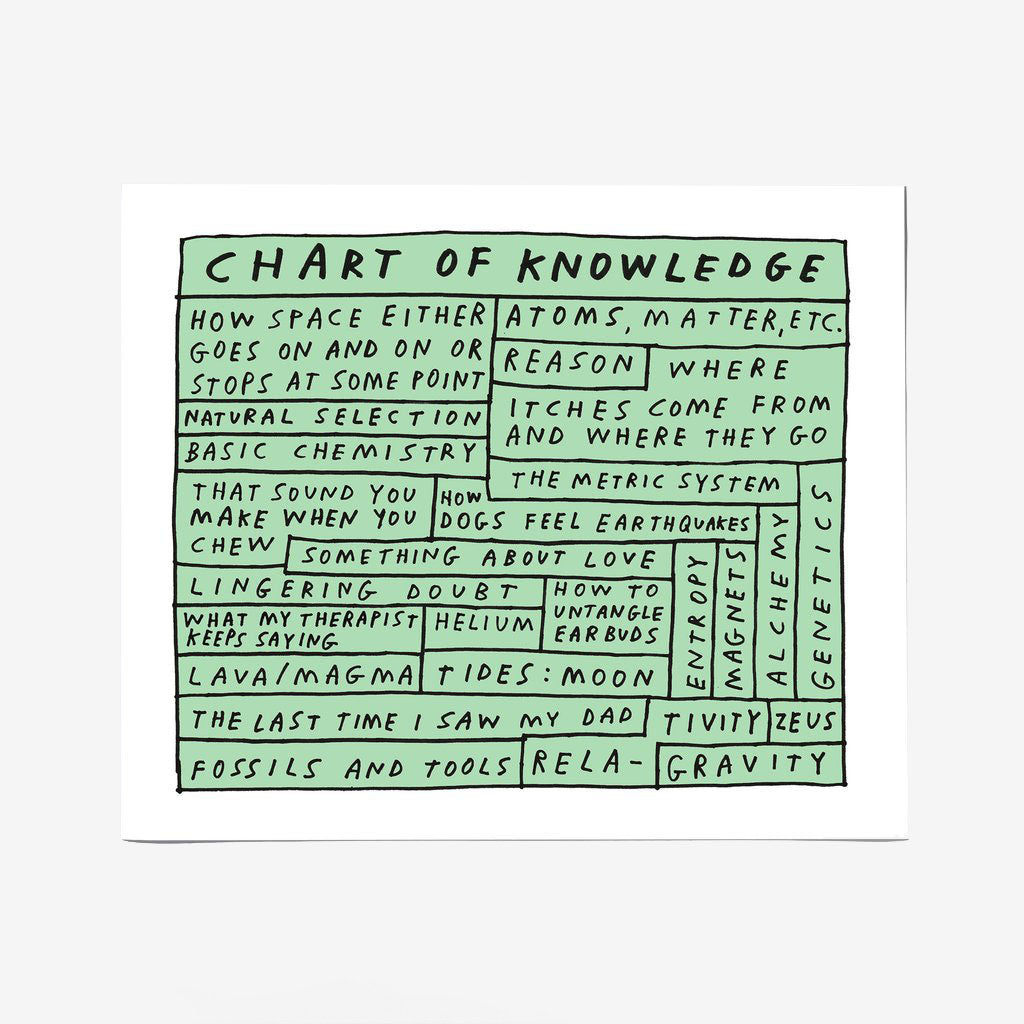 CHART OF KNOWLEDGE
HOW SPACE EITHER
GOES ON AND ON OR
STOPS AT SOME POINT
ATOMS, MATTER, ETC.
REASON
WHERE
ITCHES COME FROM
AND WHERE THEY GO
NATURAL SELECTION
BASIC CHEMISTRY
THE METRIC SYSTEM
THAT SOUND YOU
MAKE WHEN YOU
CHEW
HOW
DOGS FEEL EARTHQUAKES
SOMETHING ABOUT LOVE
LINGERING DOUBT
HOW TO
UNTANGLE
EARBUDS
WHAT MY THERAPIST
KEEPS SAYING
HELIUM
LAVA/MAGMA
TIDES: MOON
ENTROPY
MAGNETS
ALCHEMY
GENETICS
THE LAST TIME I SAW MY DAD
FOSSILS AND TOOLS
RELA-
TIVITY
ZEUS
GRAVITY